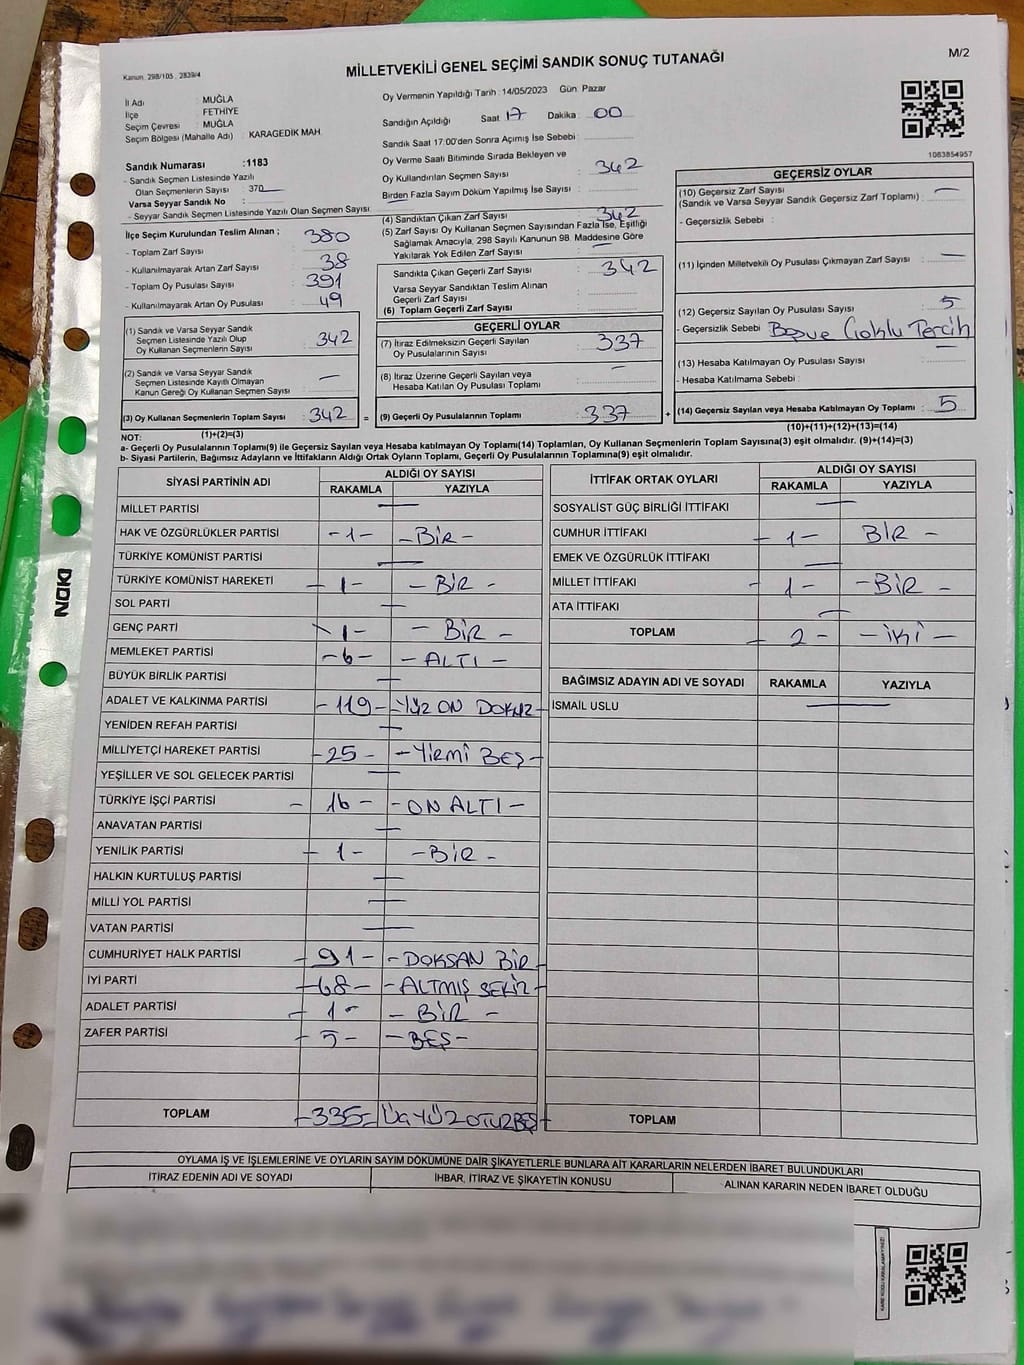 Kanun. 298/105 , 2839/4
MİLLETVEKİLİ GENEL SEÇİMİ SANDIK SONUÇ TUTANAĞI
M/2
İl Adı : MUĞLA
İlçe : FETHİYE
Seçim Çevresi : MUĞLA
Seçim Bölgesi (Mahalle Adı) : KARAGEDİK MAH.
Sandık Numarası :1183
- Sandık Seçmen Listesinde Yazılı
Olan Seçmenlerin Sayısı : 370
Varsa Seyyar Sandık No :
- Seyyar Sandık Seçmen Listesinde Yazılı Olan Seçmen Sayısı
İlçe Seçim Kurulundan Teslim Alınan ;
- Toplam Zarf Sayısı : 380
- Kullanılmayarak Artan Zarf Sayısı : 38
- Toplam Oy Pusulası Sayısı : 391
- Kullanılmayarak Artan Oy Pusulası : 49
(1) Sandık ve Varsa Seyyar Sandık
Seçmen Listesinde Yazılı Olup
Oy Kullanan Seçmenlerin Sayısı : 342
(2) Sandık ve Varsa Seyyar Sandık
Seçmen Listesinde Kayıtlı Olmayan
Kanun Gereği Oy Kullanan Seçmen Sayısı : —
(3) Oy Kullanan Seçmenlerin Toplam Sayısı : 342 =
(1)+(2)=(3)
Oy Vermenin Yapıldığı Tarih : 14/05/2023 Gün. Pazar
Sandığın Açıldığı Saat : 17 Dakika : 00
Sandık Saat 17:00'den Sonra Açımış İse Sebebi :
Oy Verme Saati Bitiminde Sırada Bekleyen ve
Oy Kullandırılan Seçmen Sayısı : 342
Birden Fazla Sayım Döküm Yapılmış İse Sayısı :
(4) Sandıktan Çıkan Zarf Sayısı : 342
(5) Zarf Sayısı Oy Kullanan Seçmen Sayısından Fazla İse, Eşitliği
Sağlamak Amacıyla, 298 Sayılı Kanunun 98. Maddesine Göre
Yakılarak Yok Edilen Zarf Sayısı : —
Sandıkta Çıkan Geçerli Zarf Sayısı : 342
Varsa Seyyar Sandıktan Teslim Alınan
Geçerli Zarf Sayısı :
(6) Toplam Geçerli Zarf Sayısı :
GEÇERLİ OYLAR
(7) İtiraz Edilmeksizin Geçerli Sayılan
Oy Pusulalarının Sayısı : 337
(8) İtiraz Üzerine Geçerli Sayılan veya
Hesaba Katılan Oy Pusulası Toplamı : —
(9) Geçerli Oy Pusulalarının Toplamı : 337 +
1063854957
GEÇERSİZ OYLAR
(10) Geçersiz Zarf Sayısı : —
(Sandık ve Varsa Seyyar Sandık Geçersiz Zarf Toplamı)
- Geçersizlik Sebebi :
(11) İçinden Milletvekili Oy Pusulası Çıkmayan Zarf Sayısı : —
(12) Geçersiz Sayılan Oy Pusulası Sayısı : 5
- Geçersizlik Sebebi : Boş ve Çoklu Tercih
(13) Hesaba Katılmayan Oy Pusulası Sayısı : —
- Hesaba Katılmama Sebebi :
(14) Geçersiz Sayılan veya Hesaba Katılmayan Oy Toplamı : 5
(10)+(11)+(12)+(13)=(14)
NOT:
a- Geçerli Oy Pusulalarının Toplamı(9) ile Geçersiz Sayılan veya Hesaba katılmayan Oy Toplamı(14) Toplamları, Oy Kullanan Seçmenlerin Toplam Sayısına(3) eşit olmalıdır. (9)+(14)=(3)
b- Siyasi Partilerin, Bağımsız Adayların ve İttifakların Aldığı Ortak Oyların Toplamı, Geçerli Oy Pusulalarının Toplamına(9) eşit olmalıdır.
SİYASİ PARTİNİN ADI ALDIĞI OY SAYISI
RAKAMLA YAZIYLA
MİLLET PARTİSİ —
HAK VE ÖZGÜRLÜKLER PARTİSİ -1- -BİR-
TÜRKİYE KOMÜNİST PARTİSİ —
TÜRKİYE KOMÜNİST HAREKETİ -1- -BİR-
SOL PARTİ —
GENÇ PARTİ -1- -BİR-
MEMLEKET PARTİSİ -6- -ALTI-
BÜYÜK BİRLİK PARTİSİ —
ADALET VE KALKINMA PARTİSİ -119- -YÜZ ON DOKUZ-
YENİDEN REFAH PARTİSİ —
MİLLİYETÇİ HAREKET PARTİSİ -25- -YİRMİ BEŞ-
YEŞİLLER VE SOL GELECEK PARTİSİ —
TÜRKİYE İŞÇİ PARTİSİ -16- -ON ALTI-
ANAVATAN PARTİSİ —
YENİLİK PARTİSİ -1- -BİR-
HALKIN KURTULUŞ PARTİSİ —
MİLLİ YOL PARTİSİ —
VATAN PARTİSİ —
CUMHURİYET HALK PARTİSİ -91- -DOKSAN BİR-
İYİ PARTİ -68- -ALTMIŞ SEKİZ-
ADALET PARTİSİ -1- -BİR-
ZAFER PARTİSİ -5- -BEŞ-
TOPLAM -335- ÜÇYÜZOTUZBEŞ-
İTTİFAK ORTAK OYLARI ALDIĞI OY SAYISI
RAKAMLA YAZIYLA
SOSYALİST GÜÇ BİRLİĞİ İTTİFAKI —
CUMHUR İTTİFAKI -1- BİR-
EMEK VE ÖZGÜRLÜK İTTİFAKI —
MİLLET İTTİFAKI -1- -BİR-
ATA İTTİFAKI —
TOPLAM -2- -İKİ-
BAĞIMSIZ ADAYIN ADI VE SOYADI RAKAMLA YAZIYLA
İSMAİL USLU —
TOPLAM
OYLAMA İŞ VE İŞLEMLERİNE VE OYLARIN SAYIM DÖKÜMÜNE DAİR ŞİKAYETLERLE BUNLARA AİT KARARLARIN NELERDEN İBARET BULUNDUKLARI
İTİRAZ EDENİN ADI VE SOYADI İHBAR, İTİRAZ VE ŞİKAYETİN KONUSU ALINAN KARARIN NEDEN İBARET OLDUĞU